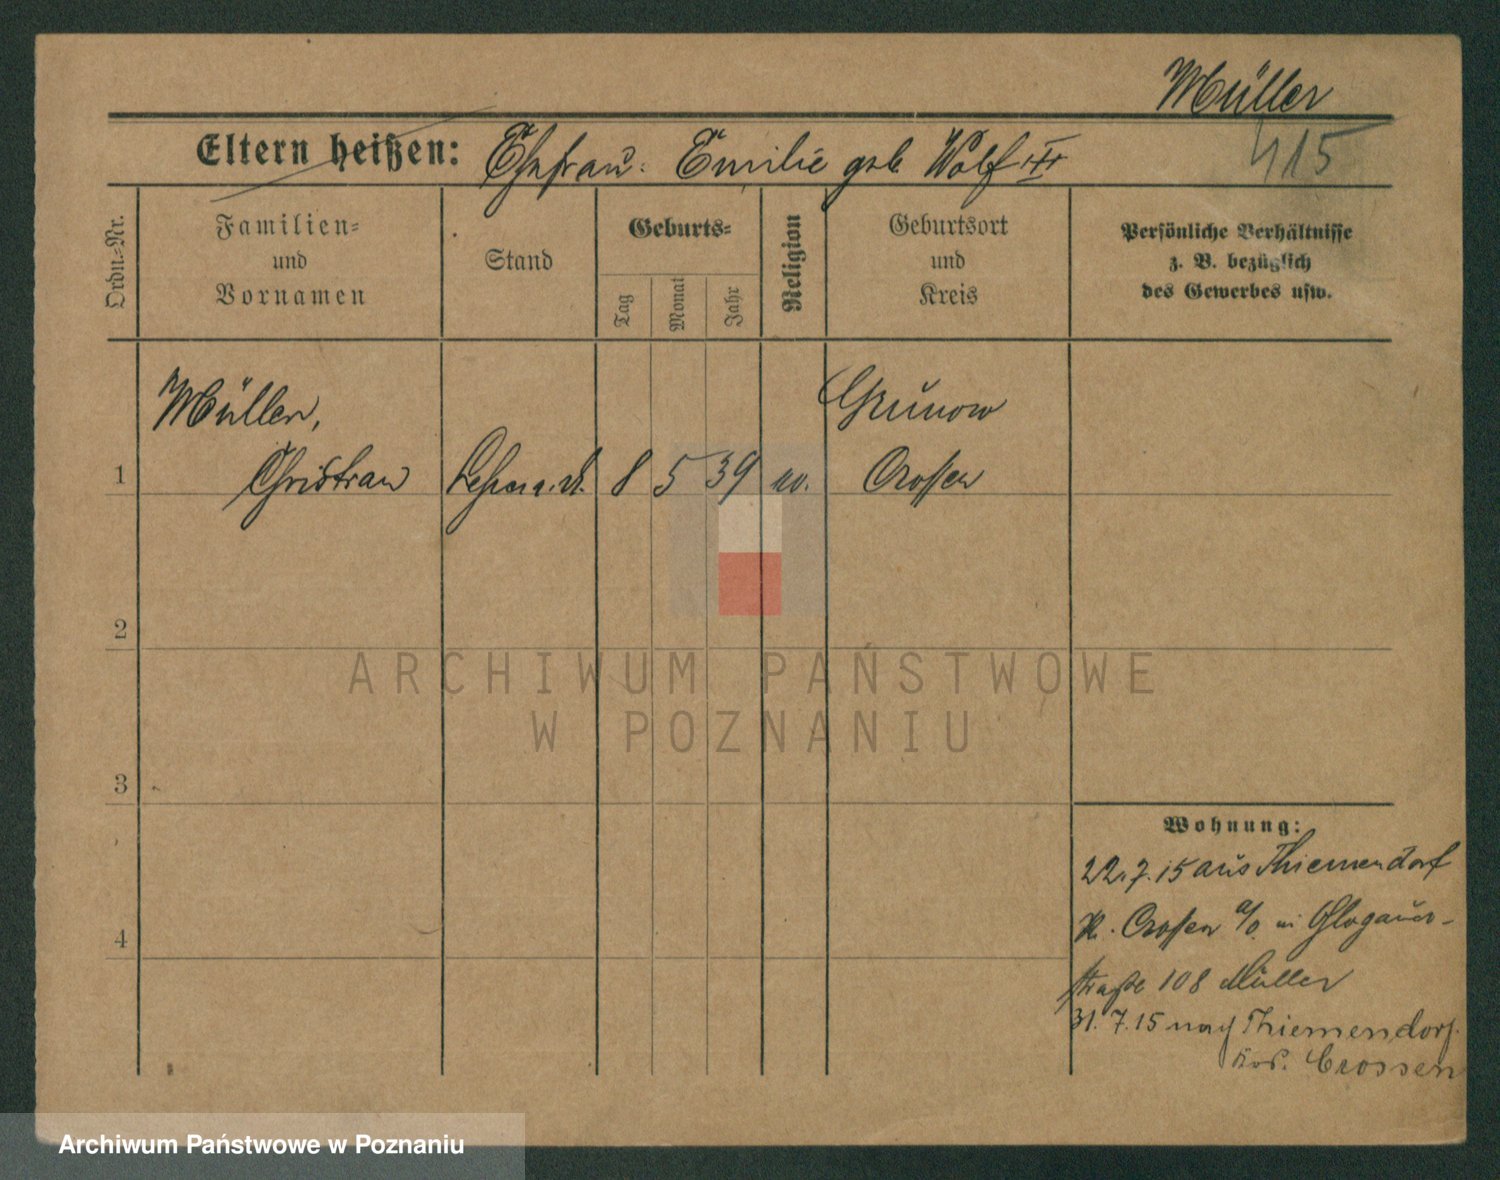 Müller
415
Eltern heißen: Ehefrau: Emilie geb. Wolf
Ordn.=Nr.
Familien=
und
Vornamen
Stand
Geburts=
Tag
Monat
Jahr
Religion
Geburtsort
und
Kreis
Persönliche Verhältnisse
z. B. bezüglich
des Gewerbes usw.
Müller,
Grünow
1 Christian 8 5 39 ev. Crossen
2
3
4
Wohnung:
22.7.15 aus Thiemendorf
K. Crossen a/O. in Glogauer-
straße 108 Müller
31.7.15 nach Thiemendorf
Crossen
ARCHIWUM PAŃSTWOWE
W POZNANIU
Archiwum Państwowe w Poznaniu